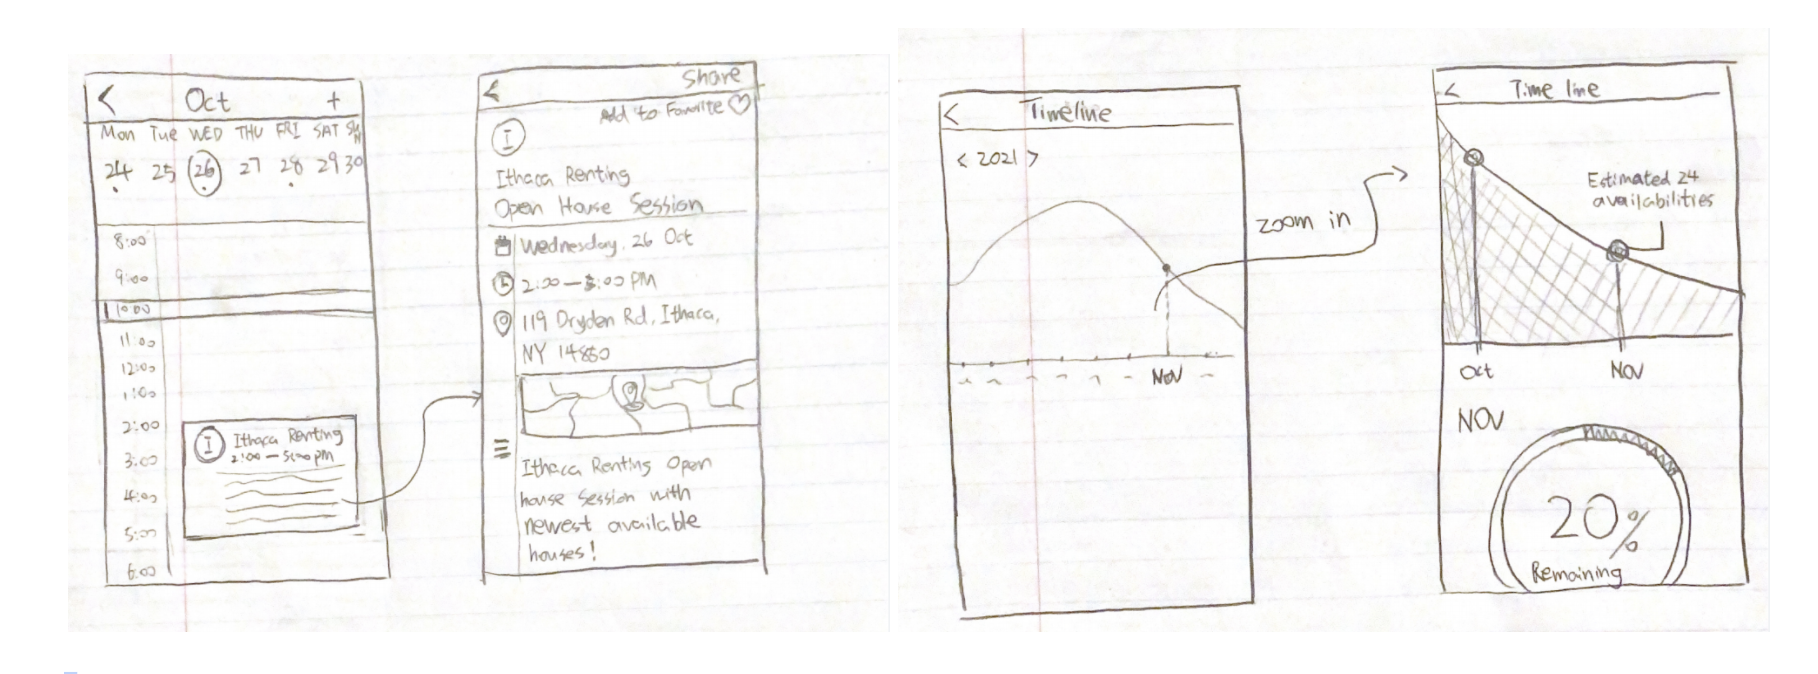 Oct +
Mon Tue WED THU FRI SAT SUN
24 25 26 27 28 29 30
8:00
9:00
10:00
11:00
12:00
1:00
2:00
3:00
4:00
5:00
6:00
I Ithaca Renting
2:00 - 5:00 pm
Share
Add to Favorite
I
Ithaca Renting
Open House Session
Wednesday, 26 Oct
2:00 — 5:00 PM
119 Dryden Rd, Ithaca,
NY 14850
Ithaca Renting Open
house session with
newest available
houses!
Timeline
< 2021 >
NOV
zoom in
Time line
Estimated 24
availabilities
Oct NOV
NOV
20%
Remaining